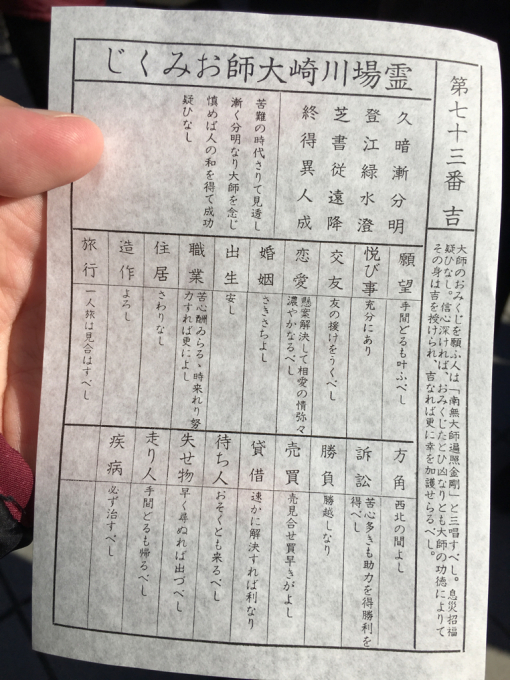 霊場川崎大師おみくじ
第七十三番 吉
大師のおみくじを願ふ人は「南無大師遍照金剛」と三唱すべし。息災招福
疑ひなし。信心深ければ、おみくじたとひ凶なりとも大師の功徳によりて
その身は吉を授けられ、吉なれば更に幸を加護せらるべし。
久暗漸分明
登江緑水澄
芝書従遠降
終得異人成
苦難の時代さりて見透し
漸く分明なり大師を念じ
慎めば人の和を得て成功
疑ひなし
願望 手間どるも叶ふべし
悦び事 充分にあり
交友 友の援けをうくべし
恋愛 懸案解決して相愛の情弥々
濃やかなるべし
婚姻 さきさちよし
出生 安し
職業 苦心酬ゐらるゝ時来れり努
力すれば更によし
住居 さわりなし
造作 よろし
旅行 一人旅は見合はすべし
方角 西北の間よし
訴訟 苦心多きも助力を得勝利を
得べし
勝負 勝越しなり
売買 売見合せ買早きがよし
貸借 速かに解決すれば利なり
待ち人 おそくとも来るべし
失せ物 早く尋ぬれば出づべし
走り人 手間どるも帰るべし
疾病 必ず治すべし